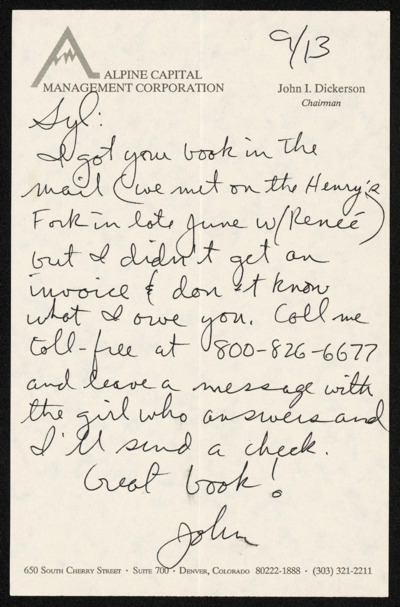 9/13
ALPINE CAPITAL
MANAGEMENT CORPORATION
John I. Dickerson
Chairman
Syl:
I got your book in the
mail (we met on the Henry's
Fork in late June w/Reneé)
but I didn't get an
invoice & don't know
what I owe you. Call me
toll-free at 800-826-6677
and leave a message with
the girl who answers and
I'll send a check.
Great book!
John
650 South Cherry Street · Suite 700 · Denver, Colorado 80222-1888 · (303) 321-2211